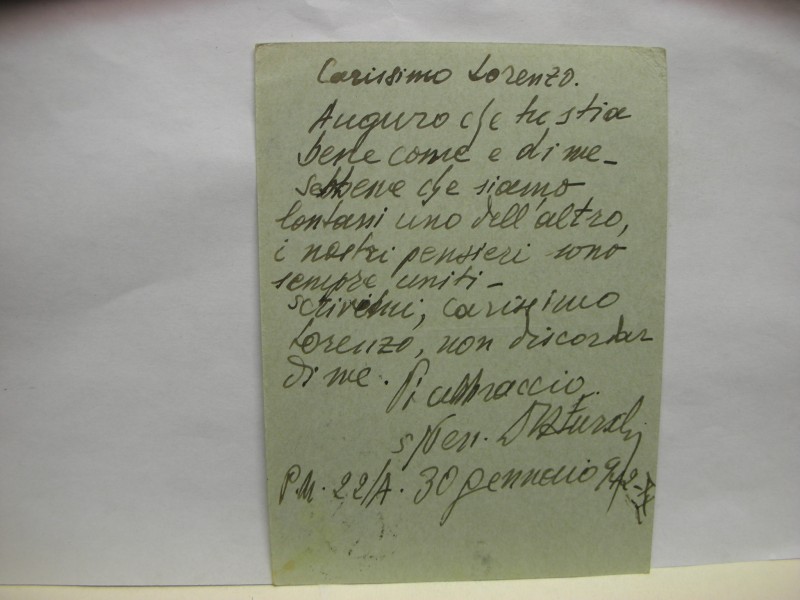 Carissimo Lorenzo.
Auguro che tu stia
bene come e di me_
sebbene che siamo
lontani uno dell'altro,
i nostri pensieri sono
sempre uniti_
scrivimi, carissimo
Lorenzo, non discordar
di me. Ti abbraccio
s/Ten.
P.M. 22/A. 30 gennaio 942-XX